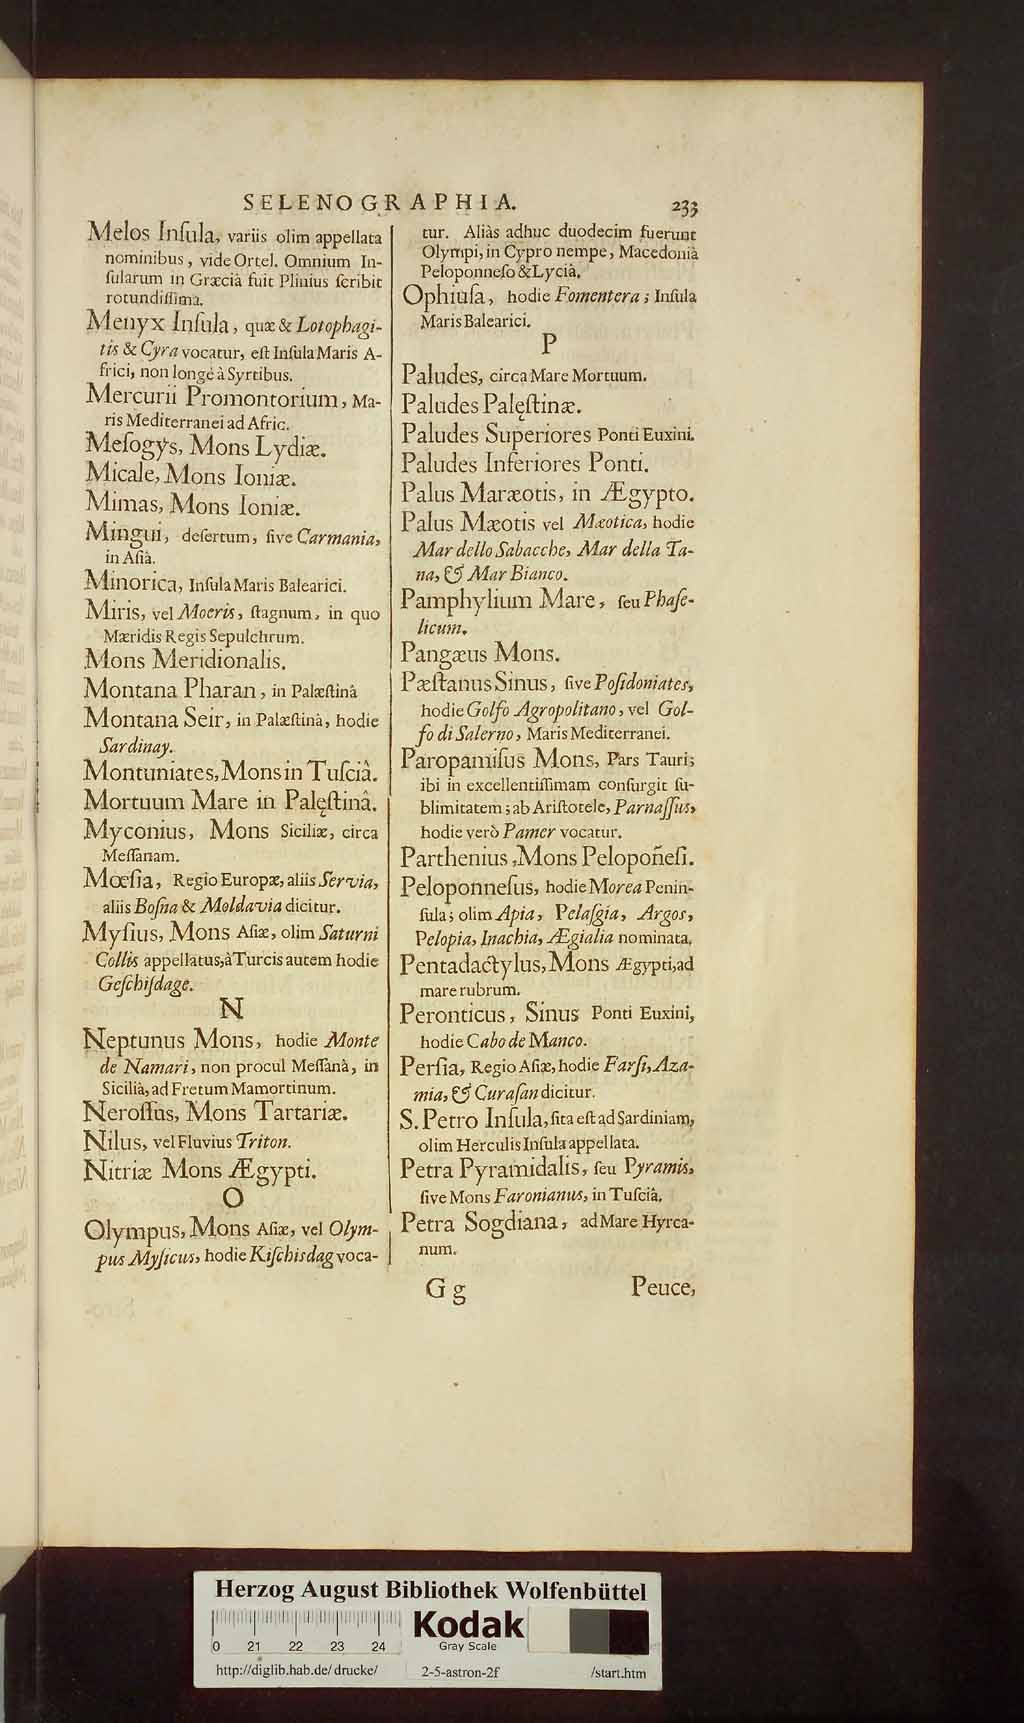 SELENOGRAPHIA. 233
Melos Inſula, variis olim appellata
nominibus, vide Ortel. Omnium In-
ſularum in Græciâ fuit Plinius ſcribit
rotundiſſima.
Menyx Inſula, quæ & Lotophagi-
tis & Cyra vocatur, eſt Inſula Maris A-
frici, non longè à Syrtibus.
Mercurii Promontorium, Ma-
ris Mediterranei ad Afric.
Meſogys, Mons Lydiæ.
Micale, Mons Ioniæ.
Mimas, Mons Ioniæ.
Mingui, deſertum, ſive Carmania,
in Aſiâ.
Minorica, Inſula Maris Balearici.
Miris, vel Moeris, ſtagnum, in quo
Mæridis Regis Sepulchrum.
Mons Meridionalis.
Montana Pharan, in Palæſtinâ
Montana Seir, in Palæſtinâ, hodie
Sardinay.
Montuniates, Mons in Tuſciâ.
Mortuum Mare in Palęſtinâ.
Myconius, Mons Siciliæ, circa
Meſſanam.
Mœſia, Regio Europæ, aliis Servia,
aliis Boſna & Moldavia dicitur.
Myſius, Mons Aſiæ, olim Saturni
Collis appellatus, à Turcis autem hodie
Geſchiſdage.
N
Neptunus Mons, hodie Monte
de Namari, non procul Meſſanà, in
Siciliâ, ad Fretum Mamortinum.
Neroſſus, Mons Tartariæ.
Nilus, vel Fluvius Triton.
Nitriæ Mons Ægypti.
O
Olympus, Mons Aſiæ, vel Olym-
pus Myſicus, hodie Kiſchisdag voca-
tur. Aliàs adhuc duodecim fuerunt
Olympi, in Cypro nempe, Macedoniâ
Peloponneſo & Lyciâ.
Ophiuſa, hodie Fomentera; Inſula
Maris Balearici.
P
Paludes, circa Mare Mortuum.
Paludes Palęſtinæ.
Paludes Superiores Ponti Euxini.
Paludes Inferiores Ponti.
Palus Maræotis, in Ægypto.
Palus Mæotis vel Mæotica, hodie
Mar dello Sabacche, Mar della Ta-
na, & Mar Bianco.
Pamphylium Mare, ſeu Phaſe-
licum.
Pangæus Mons.
Pæſtanus Sinus, ſive Poſidoniates,
hodie Golfo Agropolitano, vel Gol-
fo di Salerno, Maris Mediterranei.
Paropamiſus Mons, Pars Tauri;
ibi in excellentiſſimam conſurgit ſu-
blimitatem; ab Ariſtotele, Parnaſſus,
hodie verò Pamer vocatur.
Parthenius, Mons Pelopon̄eſi.
Peloponneſus, hodie Morea Penin-
ſula; olim Apia, Pelaſgia, Argos,
Pelopia, Inachia, Ægialia nominata.
Pentadactylus, Mons Ægypti, ad
mare rubrum.
Peronticus, Sinus Ponti Euxini,
hodie Cabo de Manco.
Perſia, Regio Aſiæ, hodie Farſi, Aza-
mia, & Curaſan dicitur.
S. Petro Inſula, ſita eſt ad Sardiniam,
olim Herculis Inſula appellata.
Petra Pyramidalis, ſeu Pyramis,
ſive Mons Faronianus, in Tuſciâ.
Petra Sogdiana, ad Mare Hyrca-
num.
G g Peuce,
Herzog August Bibliothek Wolfenbüttel
0 21 22 23 24
Kodak
Gray Scale
http://diglib.hab.de/drucke/ 2-5-astron-2f /start.htm